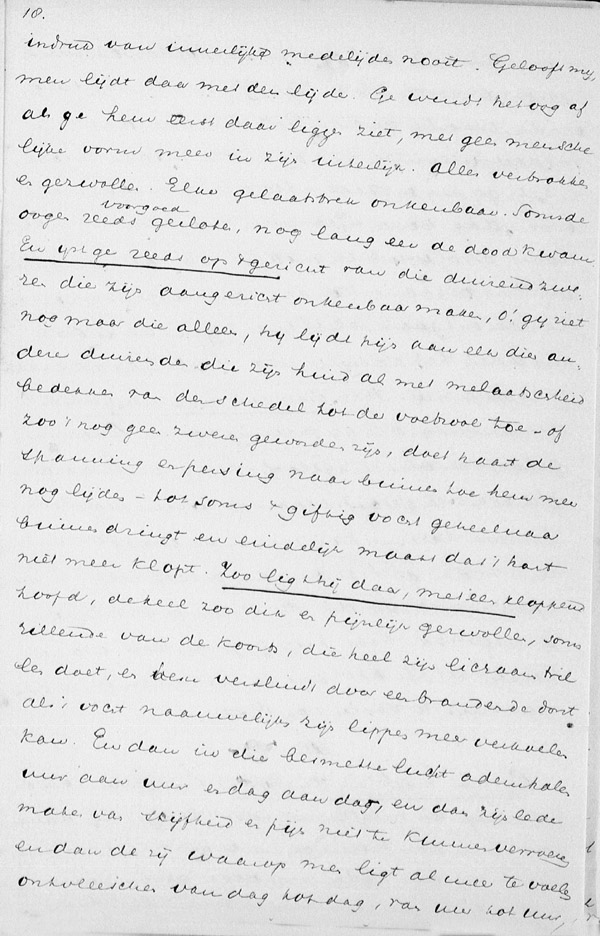 18.
indruk van innerlijke medelijden nooit. Geloof mij,
men lijdt daar met den lijde. Ge wendt het oog af
als ge hem eerst daar liggen ziet, met geen mensche
lijke vorm meer in zijn uiterlijk. alles verbrokke
en gezwollen. Elke gelaatstrek onkenbaar. Soms de
voorgoed
oogen reeds gesloten, nog lang eer de dood kwam
En gij ge reeds op 't gezicht van die duizend zwe-
ren die zijn aangezicht onkenbaar maken, O! gij ziet
nog maar die alleen, hij lijdt pijn aan elk dier an-
dere duizenden die zijn huid al met melaatscheid
bedekken van den schedel tot de voetzool toe - of
zoo 't nog geen zweren geworden zijn, doet haast de
spanning en persing naar binnen toe hem meer
nog lijden - tot soms 't giftig vocht geheel naar
binnen dringt en eindelijk maakt dat 't hart
niet meer klopt. Zoo ligt hij daar, met een kloppend
hoofd, de keel zoo dik en pijnlijk gezwollen, soms
rillende van de koorts, die heel zijn lichaam tril
len doet, en hem verslindt door een brandende dorst
als 't vocht naauwelijks zijn lippen meer verkoelen
kan. En dan in die besmette lucht ademhalen
uur aan uur en dag aan dag, en dan zijn lede
maten van stijfheid en pijn niet te kunnen verroeren
en dan de zij waarop men ligt al meer te voelen
ontvleeschen van dag tot dag, van uur tot uur,